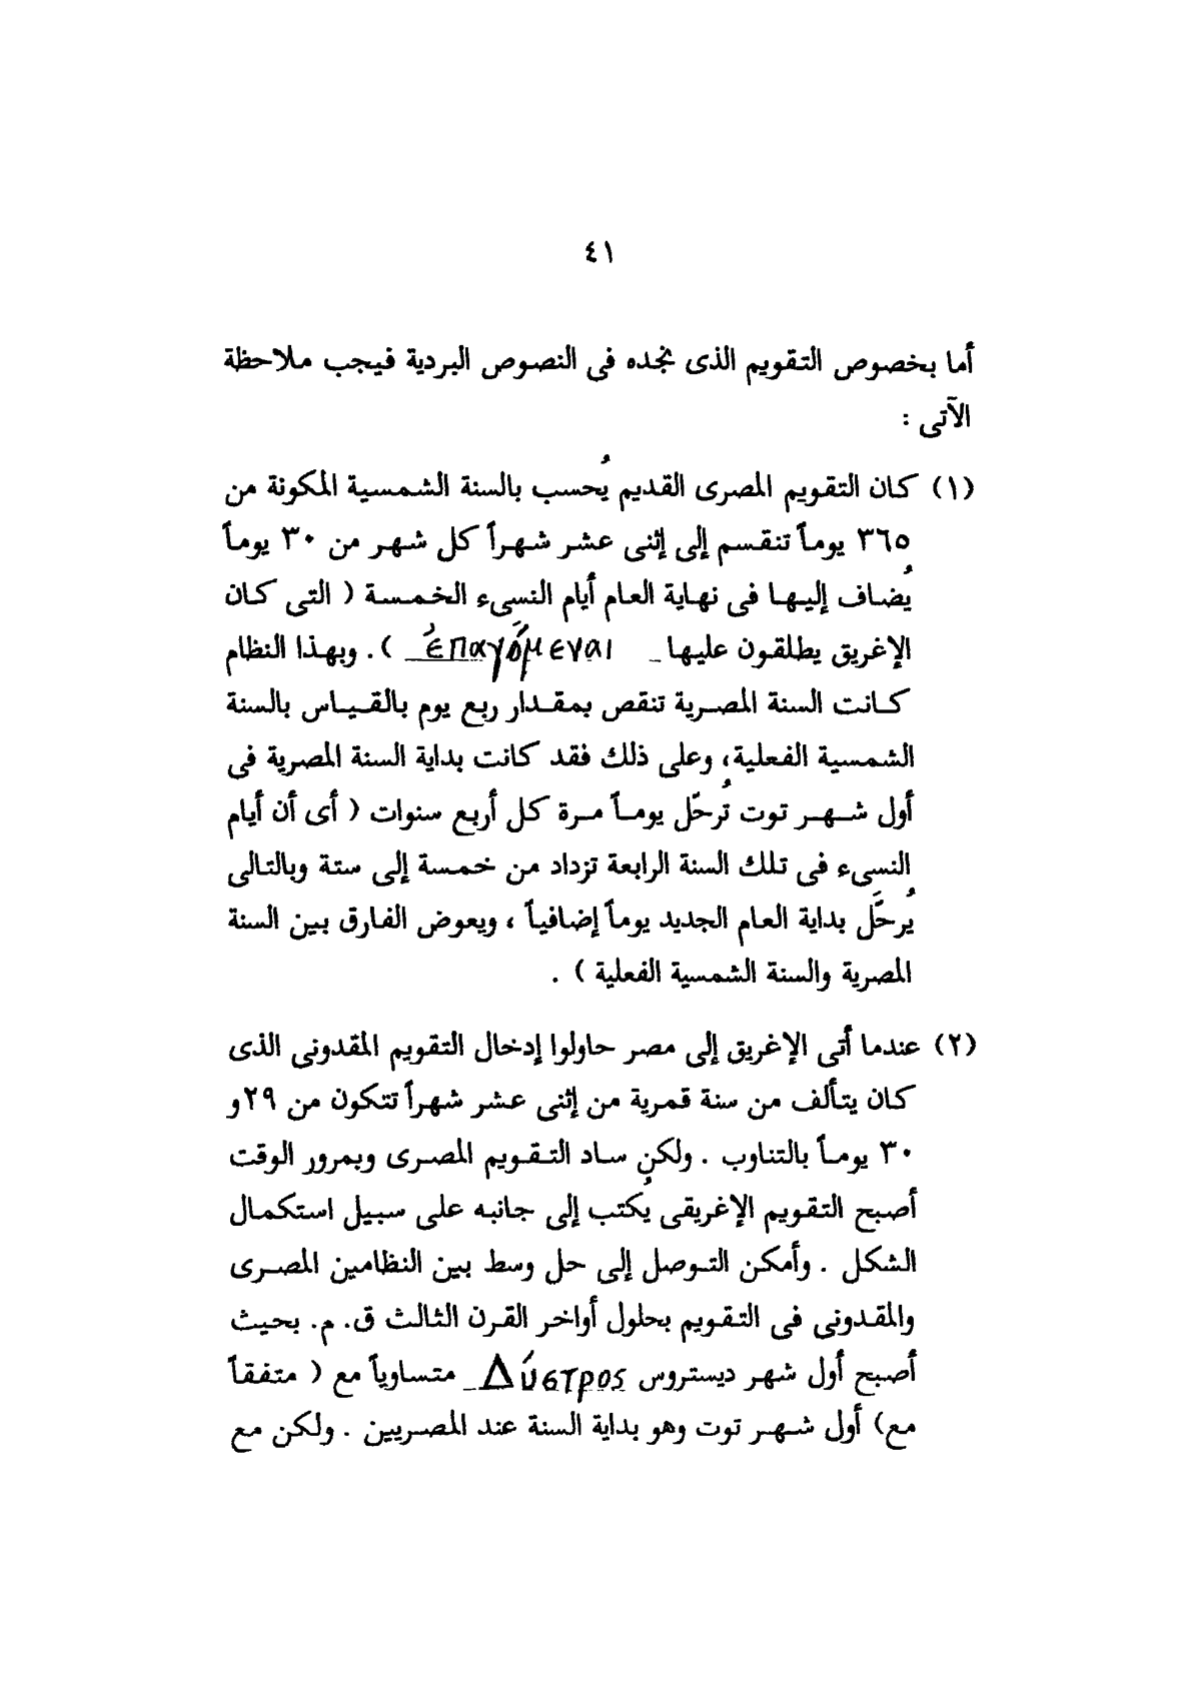 ٤١
أما بخصوص التقويم الذى نجده فى النصوص البردية فيجب ملاحظة
الآتى :
(١) كان التقويم المصرى القديم يُحسب بالسنة الشمسية المكونة من
٣٦٥ يوماً تنقسم إلى إثنى عشر شهراً كل شهر من ٣٠ يوماً
يُضاف إليها فى نهاية العام أيام النسىء الخمسة ( التى كان
الإغريق يطلقون عليها ἐπαγόμεναι ). وبهذا النظام
كانت السنة المصرية تنقص بمقدار ربع يوم بالقياس بالسنة
الشمسية الفعلية، وعلى ذلك فقد كانت بداية السنة المصرية فى
أول شهر توت تُرحّل يوماً مرة كل أربع سنوات ( أى أن أيام
النسىء فى تلك السنة الرابعة تزداد من خمسة إلى ستة وبالتالى
يُرحَّل بداية العام الجديد يوماً إضافياً ، ويعوض الفارق بين السنة
المصرية والسنة الشمسية الفعلية ) .
(٢) عندما أتى الإغريق إلى مصر حاولوا إدخال التقويم المقدونى الذى
كان يتألف من سنة قمرية من إثنى عشر شهراً تتكون من ٢٩و
٣٠ يوماً بالتناوب . ولكن ساد التقويم المصرى وبمرور الوقت
أصبح التقويم الإغريقى يُكتب إلى جانبه على سبيل استكمال
الشكل . وأمكن التوصل إلى حل وسط بين النظامين المصرى
والمقدونى فى التقويم بحلول أواخر القرن الثالث ق. م. بحيث
أصبح أول شهر ديستروس Δύστρος متساوياً مع ( متفقاً
مع) أول شهر توت وهو بداية السنة عند المصريين . ولكن مع